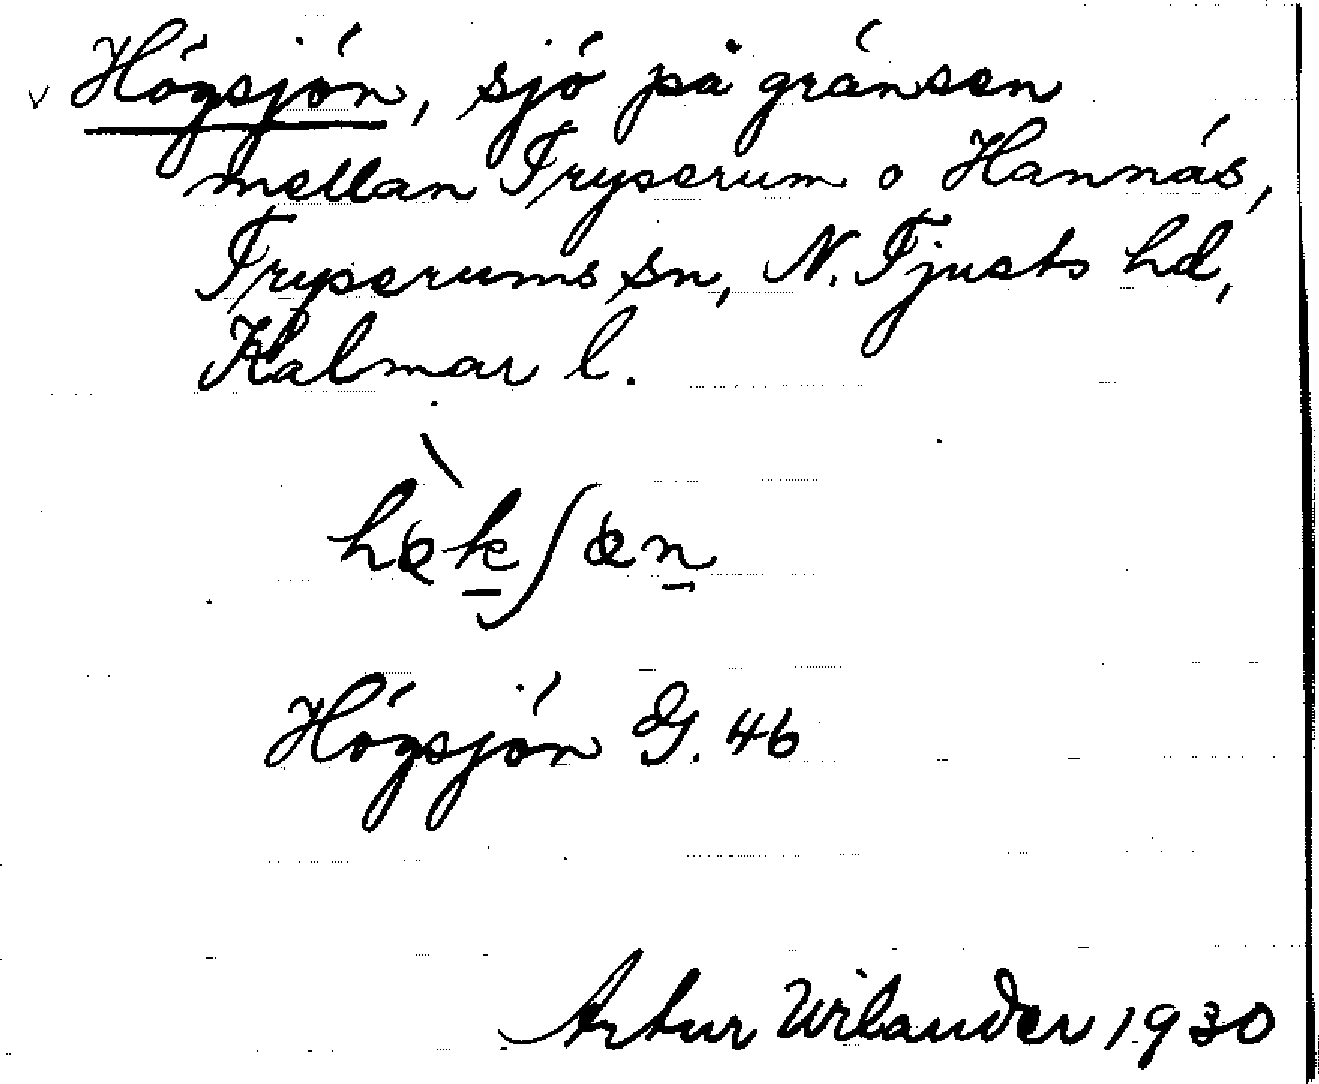 v Högsjön, sjö på gränsen
mellan Tryserum o Hannäs,
Tryserums sn, N. Tjusts hd,
Kalmar l.
Högsjön G. 46
Artur Wilander 1930